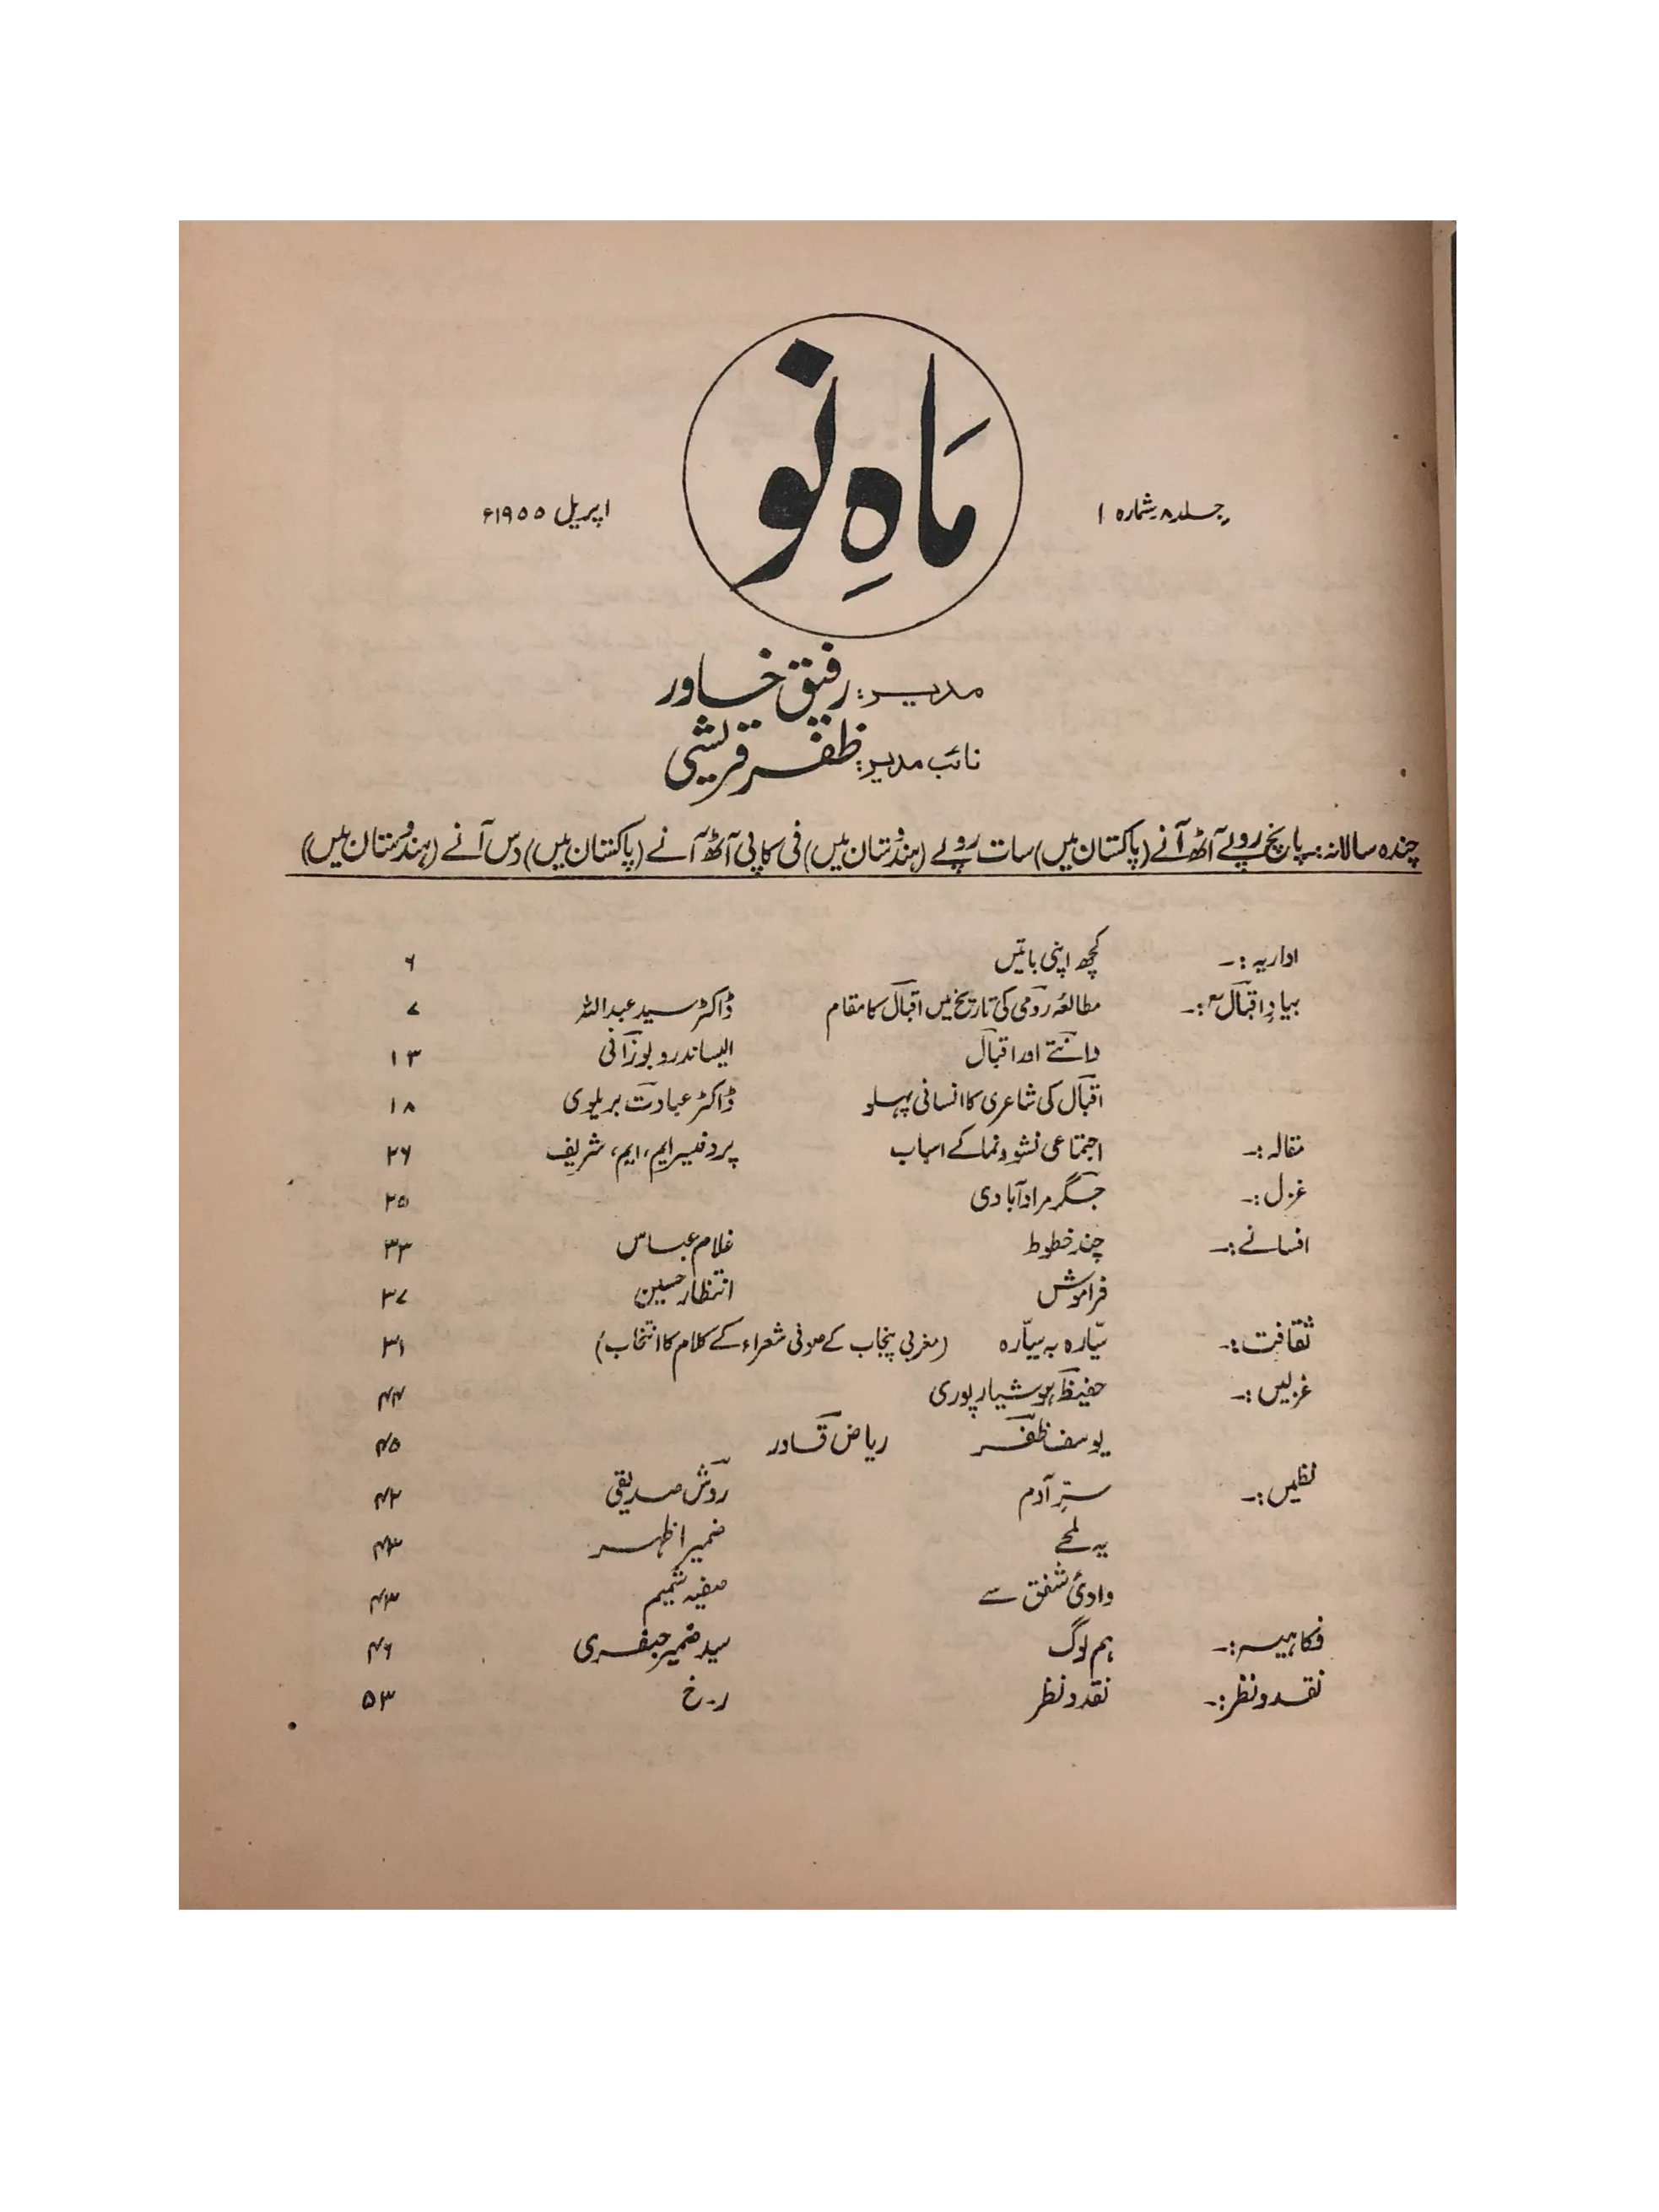 ماہِ نو
جلد ۸ شمارہ ۱
اپریل ۱۹۵۵ء
مدیر: رفیق خاور
نائب مدیر: ظفر قریشی
چندہ سالانہ: پانچ روپے آٹھ آنے (پاکستان میں) سات روپے (ہندوستان میں) فی کاپی آٹھ آنے (پاکستان میں) دس آنے (ہندوستان میں)
اداریہ:۔ کچھ اپنی باتیں ۶
بیادِ اقبالؒ:۔ مطالعۂ رومی کی تاریخ میں اقبال کا مقام ڈاکٹر سید عبداللہ ۷
دانتے اور اقبال الیساندرو بوزانی ۱۳
اقبال کی شاعری کا انسانی پہلو ڈاکٹر عبادت بریلوی ۱۸
مقالہ:۔ اجتماعی نشوونما کے اسباب پروفیسر ایم، ایم، شریف ۲۶
غزل:۔ جگر مرادآبادی ۲۵
افسانے:۔ چند خطوط غلام عباس ۳۳
فراموش انتظار حسین ۳۷
ثقافت:۔ سیّارہ بہ سیّارہ (مغربی پنجاب کے صوفی شعراء کے کلام کا انتخاب) ۳۱
غزلیں:۔ حفیظ ہوشیارپوری ۴۴
یوسف ظفر ریاض قادر ۴۵
نظمیں:۔ سرِّ آدم روش صدیقی ۴۲
یہ لمحے ضمیر اظہر ۴۳
وادیٔ شفق سے صفیہ شمیم ۴۳
فکاہیہ:۔ ہم لوگ سید ضمیر جعفری ۴۶
نقد و نظر:۔ نقد و نظر ر۔خ ۵۳